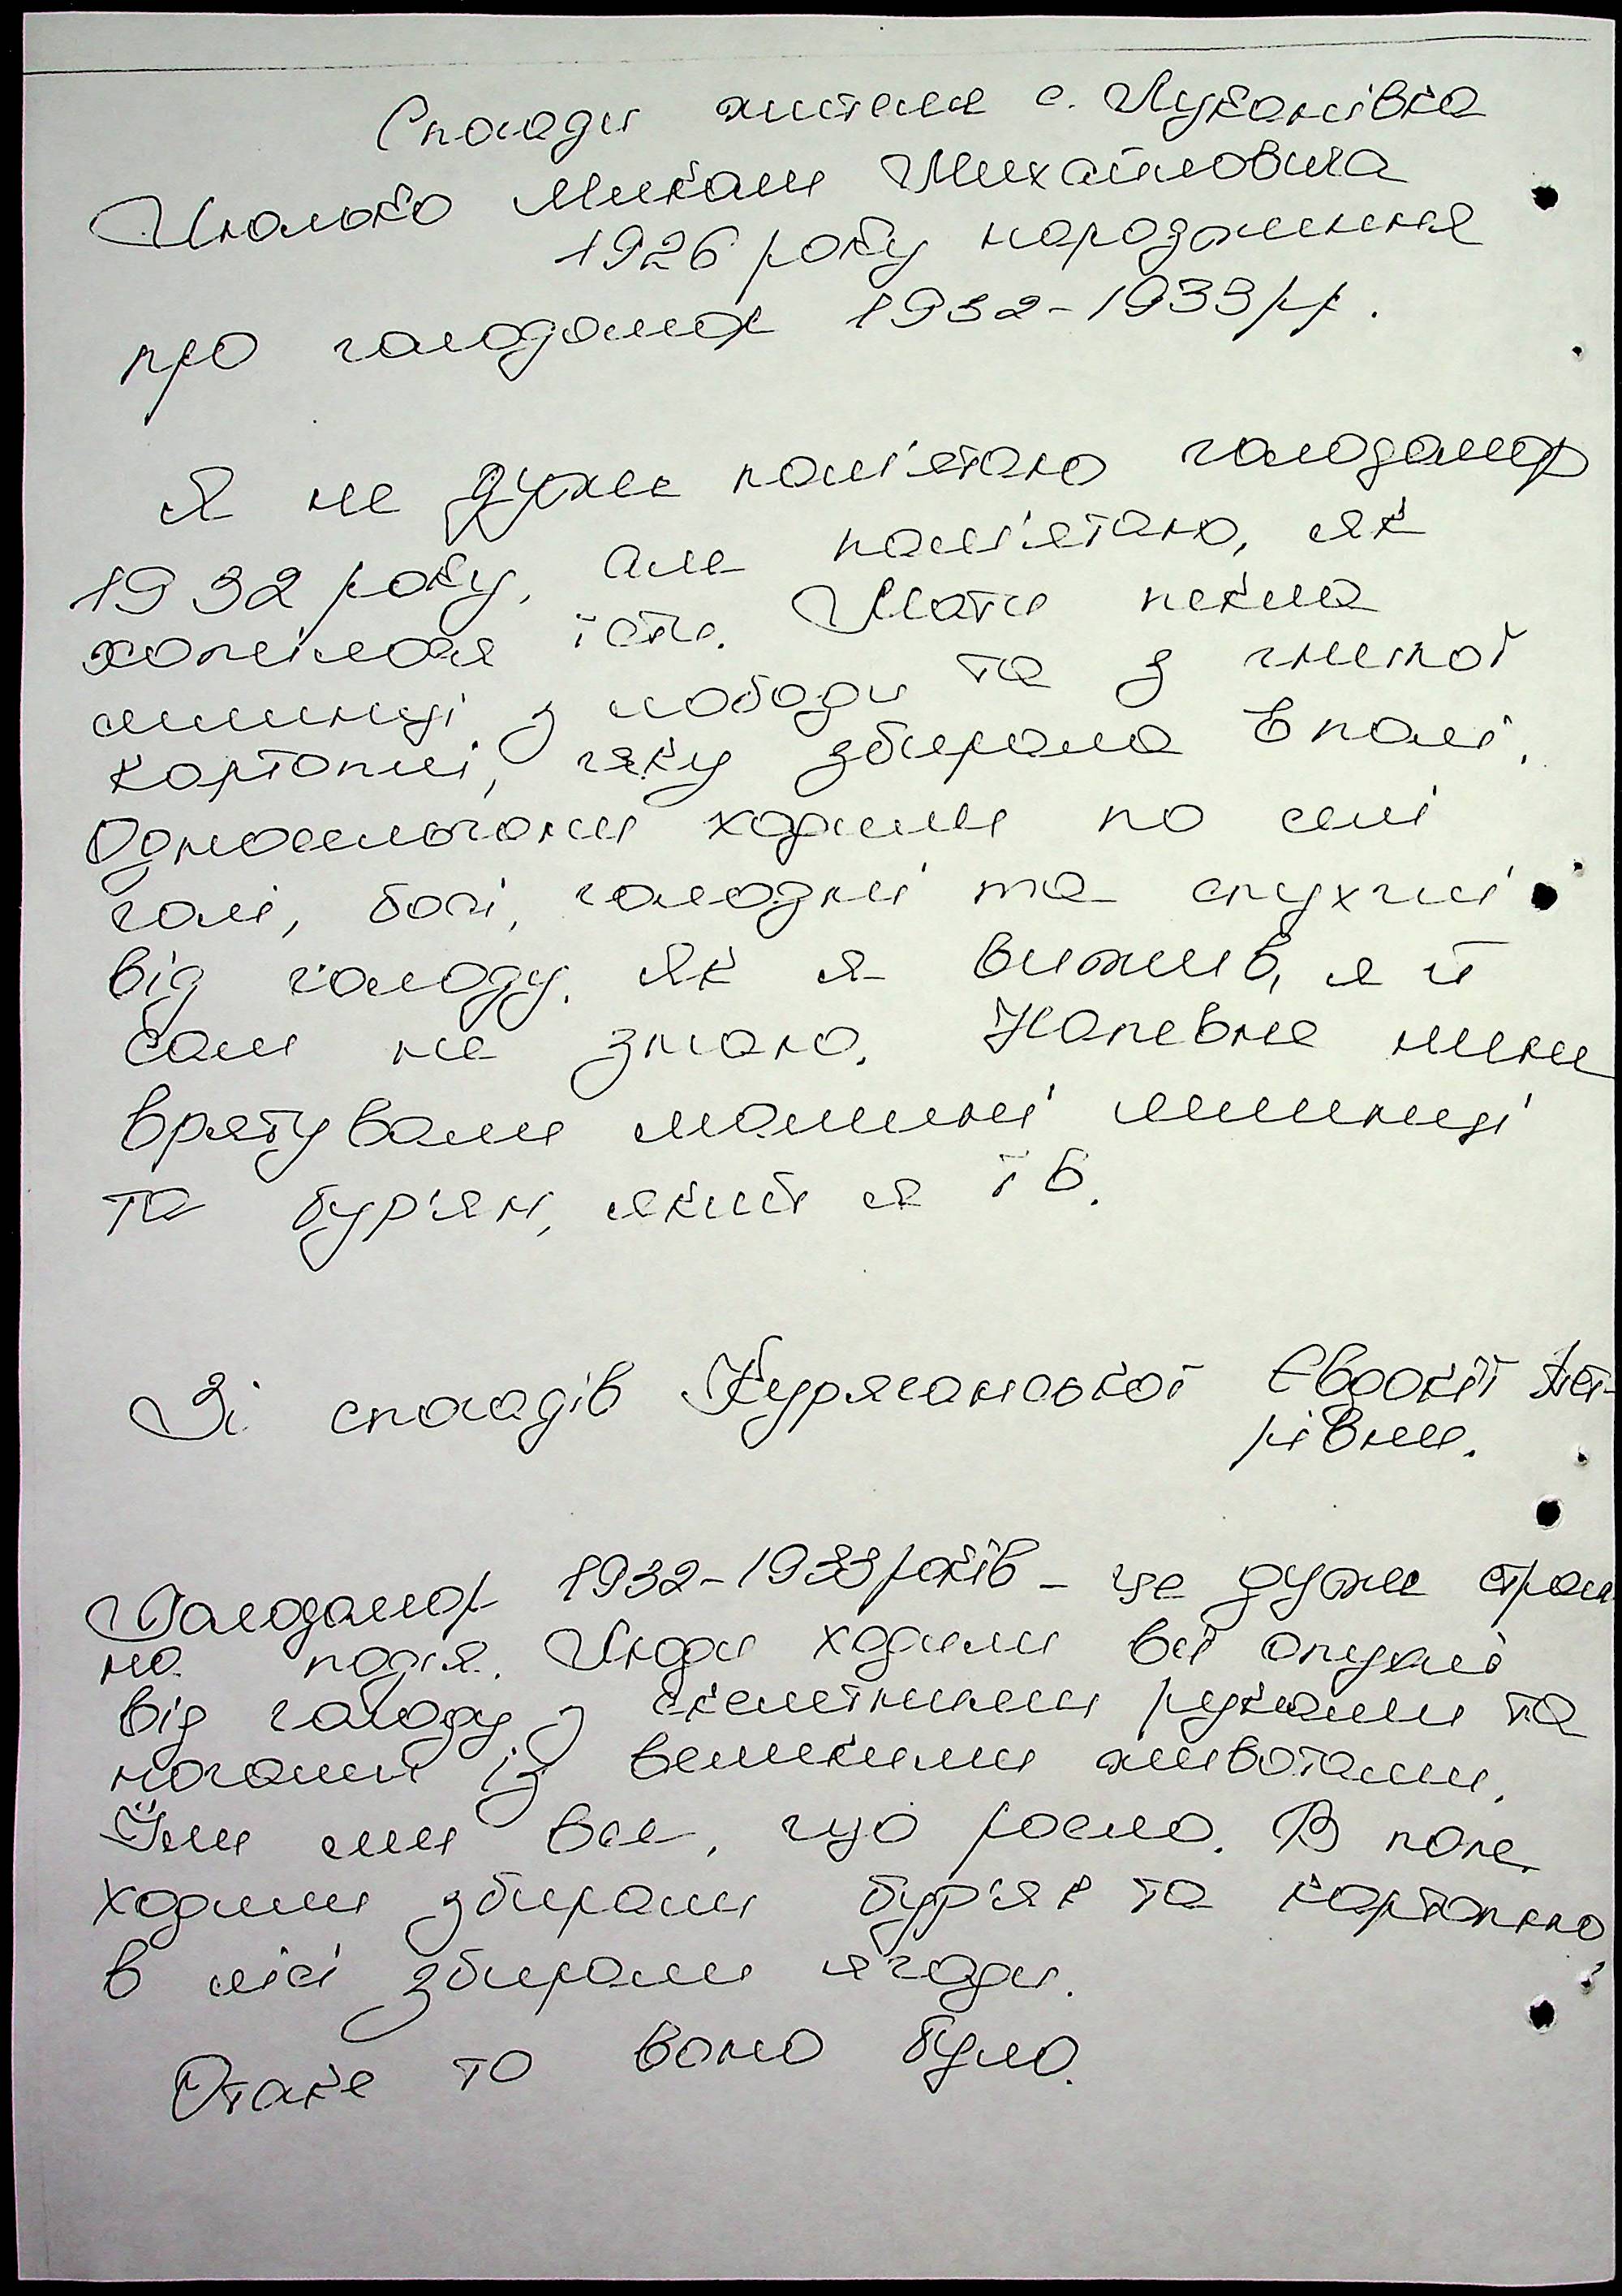 Спогади жителя с. Луканівка
Миколи Михайловича
1926 року народження
про голодомор 1932-1933 рр.
Я не дуже пам'ятаю голодомор
1932 року, але пам'ятаю, як
хотілося їсти. Мати пекла
млинці з лободи та з гнилої
картоплі, яку збирала в полі.
Односельчани ходили по селі
голі, босі, голодні та спухлі
від голоду. Як я вижив, я й
сам не знаю. Напевне мене
врятували мамині млинці
та бур'ян, який я їв.
Зі спогадів Евдокії Пет-
рівни.
Голодомор 1932-1933 років – це дуже страш
на подія. Люди ходили всі опухлі
від голоду з скелетними руками та
ногами із великими животами.
Їли ми все, що росло. В поле
ходили збирали бур'як та картоплю
в лісі збирали ягоди.
Отаке то воно було.